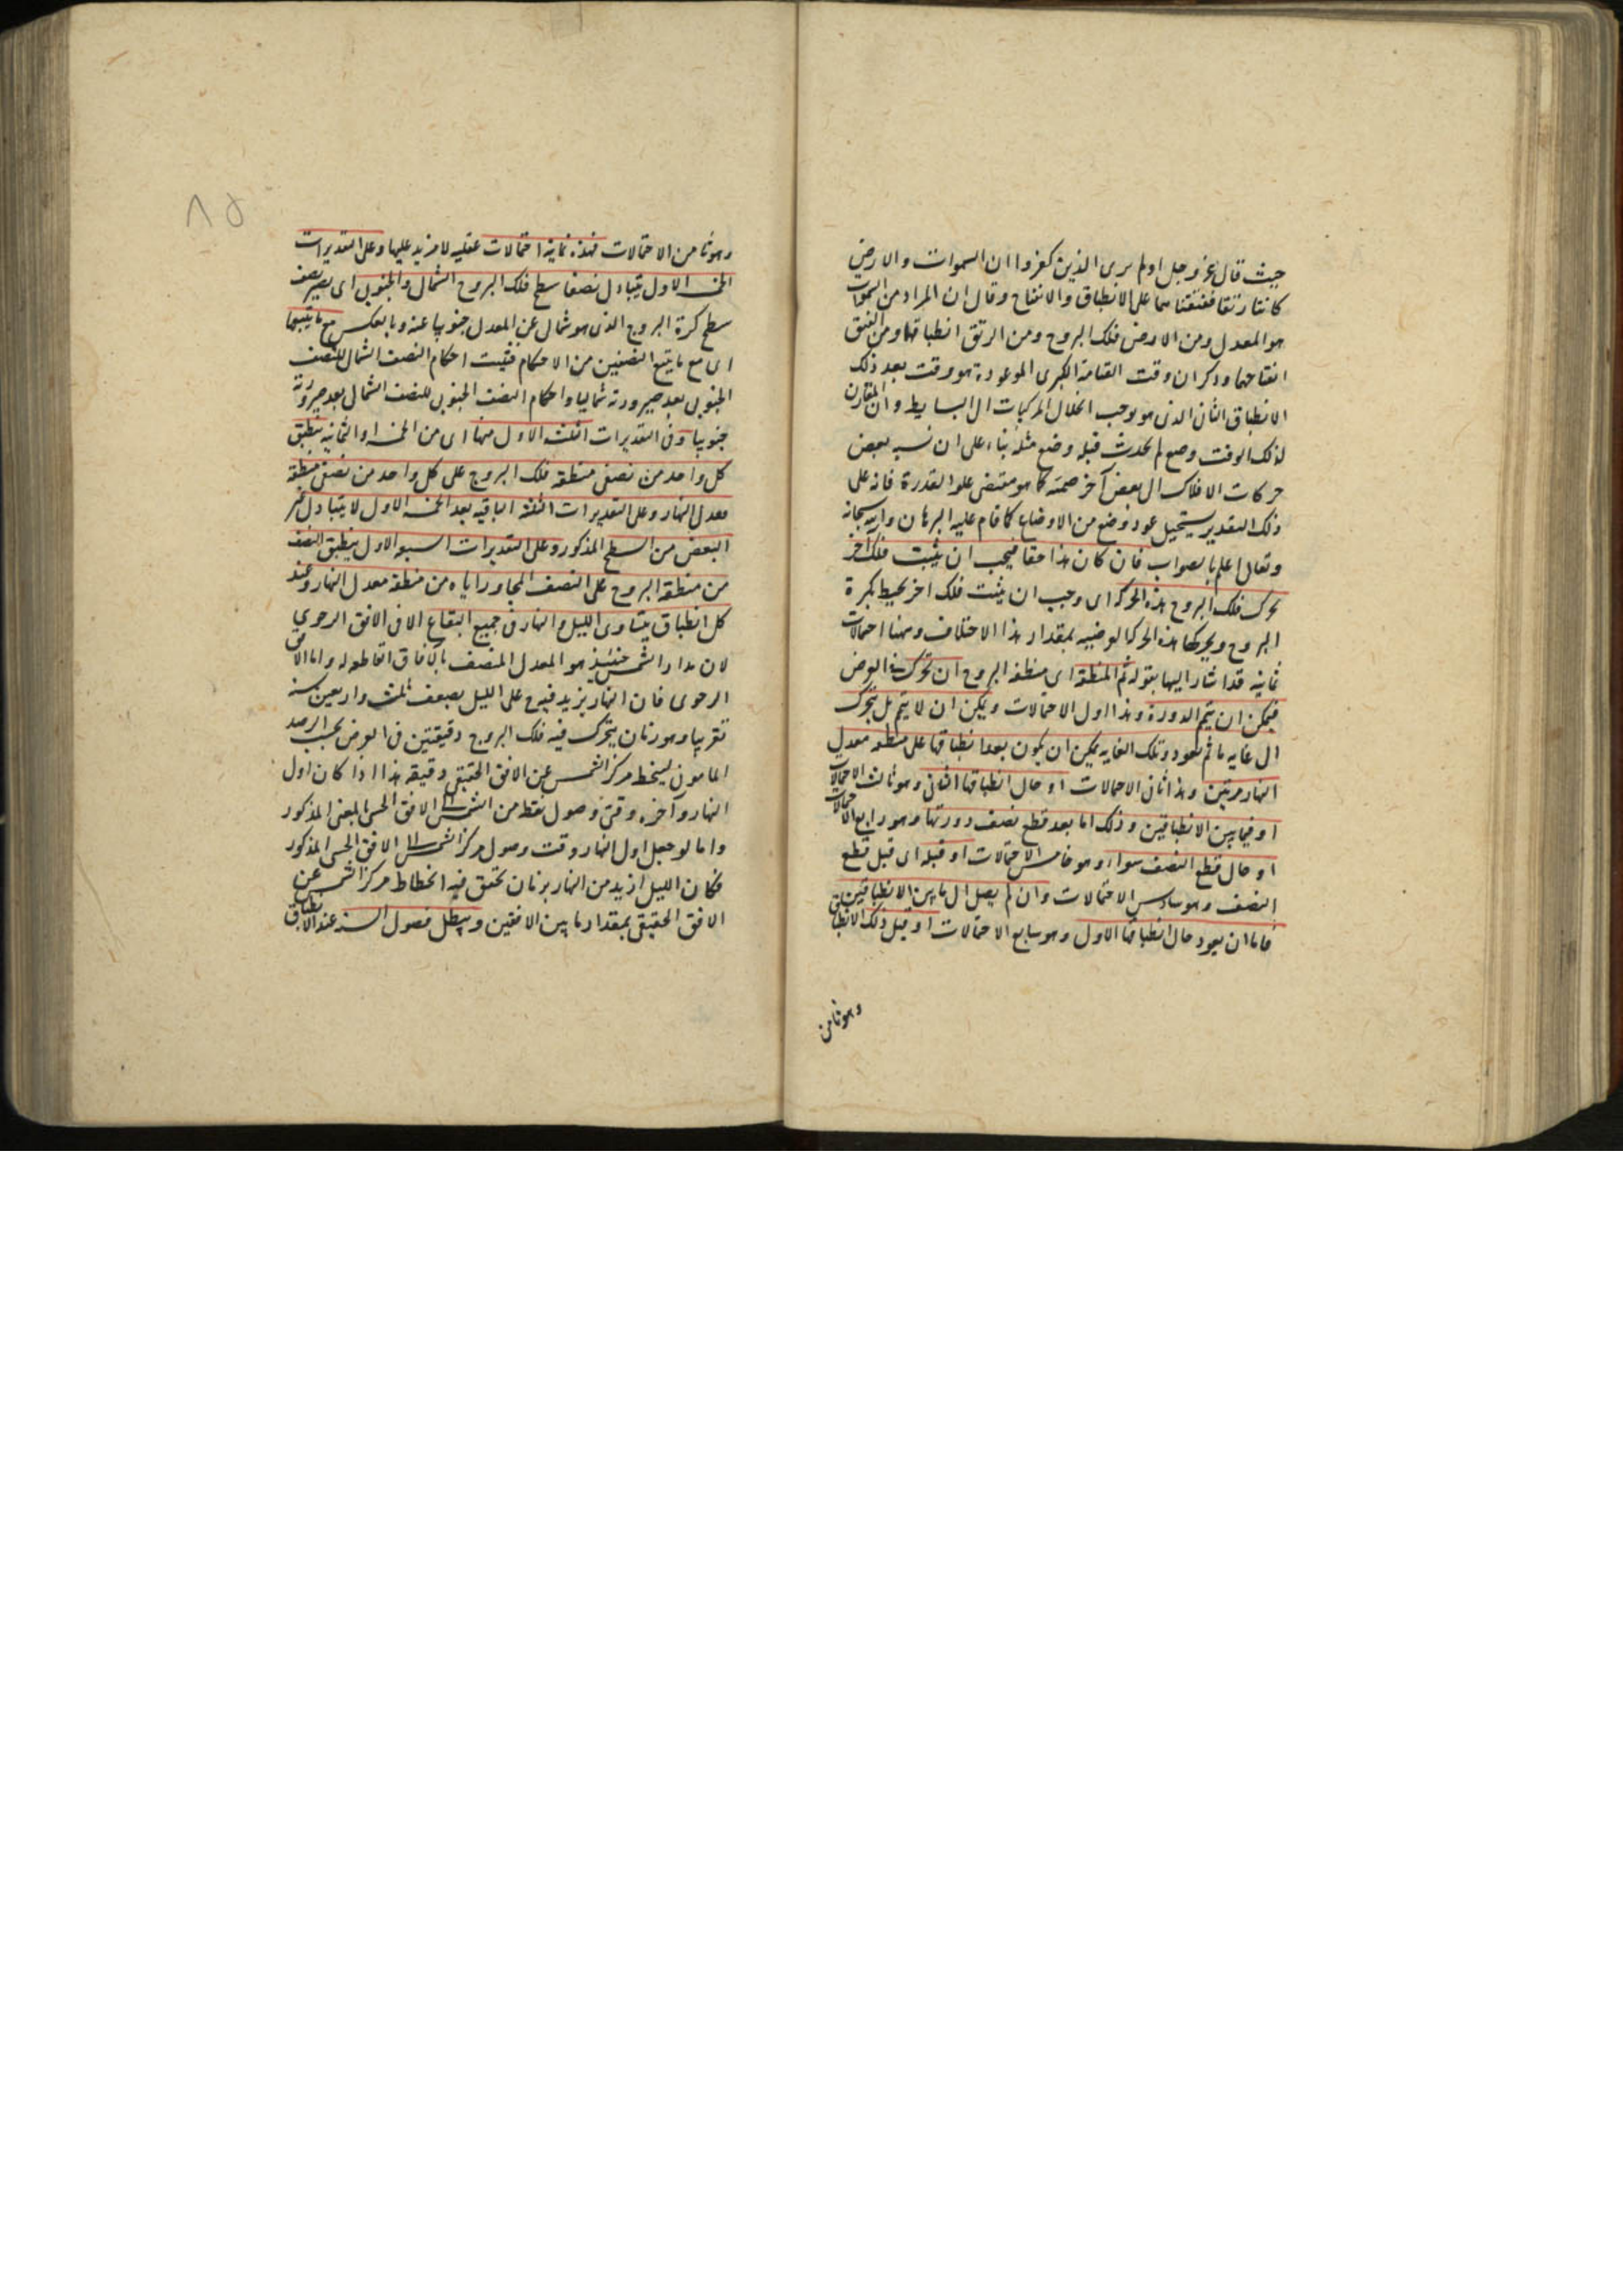 حيث قال عز وجل اولم يرى الذين كفروا ان السموات والارض
كانتا رتقا ففتقناهما على الانطباق والانفتاح وقال ان المراد من السموات
هو المعدل ومن الارض فلك البروج ومن الرتق انطباقهما ومن الفتق
انفتاحهما وذكر ان وقت القيامة الكبرى الموعودة هو وقت بعد ذلك
الانطباق الثانى الذى هو يوجب انحلال المركبات الى البسايط وان المقارن
لذلك الوقت وضع لم يحدث قبله وضع مثله بناء على ان نسبة بعض
حركات الافلاك الى بعض آخر صمية كما هو مقتضى علو القدرة فانه على
ذلك التقدير يستحيل عود وضع من الاوضاع كما قام عليه البرهان والله سبحانه
وتعالى اعلم بالصواب فان كان هذا حقا فيجب ان يثبت فلك اخر
يحرك فلك البروج هذه الحركة اى وجب ان يثبت فلك اخر يحيط بكرة
البروج ويحركها هذه الحركة العرضية بمقدار هذا الاختلاف وههنا احتمالات
ثمانية قد اشار اليها بقوله ثم المنطقة اى منطقة البروج ان تحركت فى العرض
فيمكن ان يتم الدورة وهذا اول الاحتمالات ويمكن ان لا يتم بل يتحرك
الى غاية ما ثم يعود وتلك الغاية يمكن ان يكون بعد انطباقها على منطقة معدل
النهار مرتين وهذا ثانى الاحتمالات او حال انطباقها الثانى وهو ثالث الاحتمالات
او فيما بين الانطباقين وذلك اما بعد قطع نصف دورتها وهو رابع الاحتمالات
او حال قطع النصف سواء وهو خامس الاحتمالات او قبله اى قبل قطع
النصف وهو سادس الاحتمالات وان لم يصل الى ما بين الانطباقين
فاما ان يعود حال انطباقها الاول وهو سابع الاحتمالات او قبل ذلك الانطباق
وهو ثامن
٨٥
وهو ثامن الاحتمالات فهذه ثمانية احتمالات عقلية لا مزيد عليها وعلى التقديرات
الخمسة الاول يتبادل نصفا سطح فلك البروج الشمالى والجنوبى اى يصير نصف
سطح كرة البروج الذى هو شمالى عن المعدل جنوبيا عنه وبالعكس مع ما يتبعهما
اى مع ما يتبع النصفين من الاحكام فيثبت احكام النصف الشمالى للنصف
الجنوبى بعد صيرورته شماليا واحكام النصف الجنوبى للنصف الشمالى بعد صيرورته
جنوبيا وفى التقديرات الثلثة الاول منها اى من الخمسة او الثمانية ينطبق
كل واحد من نصفى منطقة فلك البروج على كل واحد من نصفى منطقة
معدل النهار وعلى التقديرات الثلثة الباقية بعد الخمسة الاول لا يتبادل غير
البعض من السطح المذكور وعلى التقديرات السبعة الاول ينطبق النصف
من منطقة البروج على النصف المجاور اياه من منطقة معدل النهار وعند
كل انطباق يتساوى الليل والنهار فى جميع البقاع الا فى الافق الرحوى
لان مدار الشمس حينئذ هو المعدل المنصف بالآفاق القاطعة له واما الافق
الرحوى فان النهار يزيد فيه على الليل بضعف ثلث واربعين سنة
تقريبا وهو زمان يتحرك فيه فلك البروج دقيقتين فى العرض بحسب الرصد
المأمونى لينحط مركز الشمس عن الافق الحقيقى دقيقة هذا اذا كان اول
النهار وآخره وقتى وصول نقطة من الشمس الى الافق الحسى بالمعنى المذكور
واما لو جعل اول النهار وقت وصول مركز الشمس الى الافق الحسى المذكور
فكان الليل ازيد من النهار بزمان تحقق فيه انحطاط مركز الشمس عن
الافق الحقيقى بمقدار ما بين الافقين ويبطل فصول السنة عند الانطباق